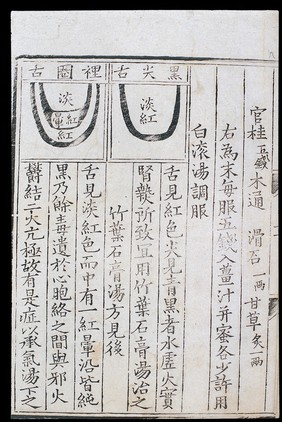 官桂五錢 木通 滑石一兩 甘草炙一兩
右為末每服五錢入薑汁并蜜各少許用
白滾湯調服
黑尖舌
淡紅
舌見紅色尖見青黑者水虛火實
腎熱所致宜用竹葉石膏湯治之
竹葉石膏湯方見後
裡圈舌
淡
紅暈
紅
舌見淡紅色而中有一紅暈沿皆純
黑乃餘毒遺於心胞絡之間與邪火
鬱結二火亢極故有是症以承氣湯下之